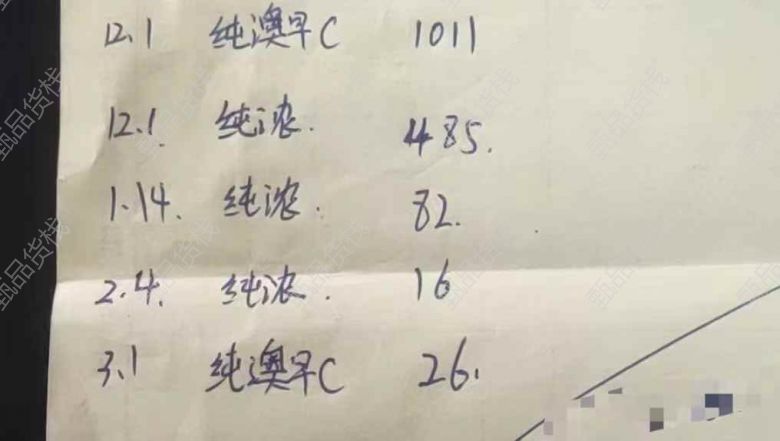 12.1 纯澳早C 1011
12.1. 纯浓. 485.
1.14. 纯浓. 82.
2.4. 纯浓. 16
3.1 纯澳早C 26.
甄品货栈
甄品货栈
甄品货栈
甄品货栈
甄品货栈
甄品货栈
甄品货栈
甄品货栈